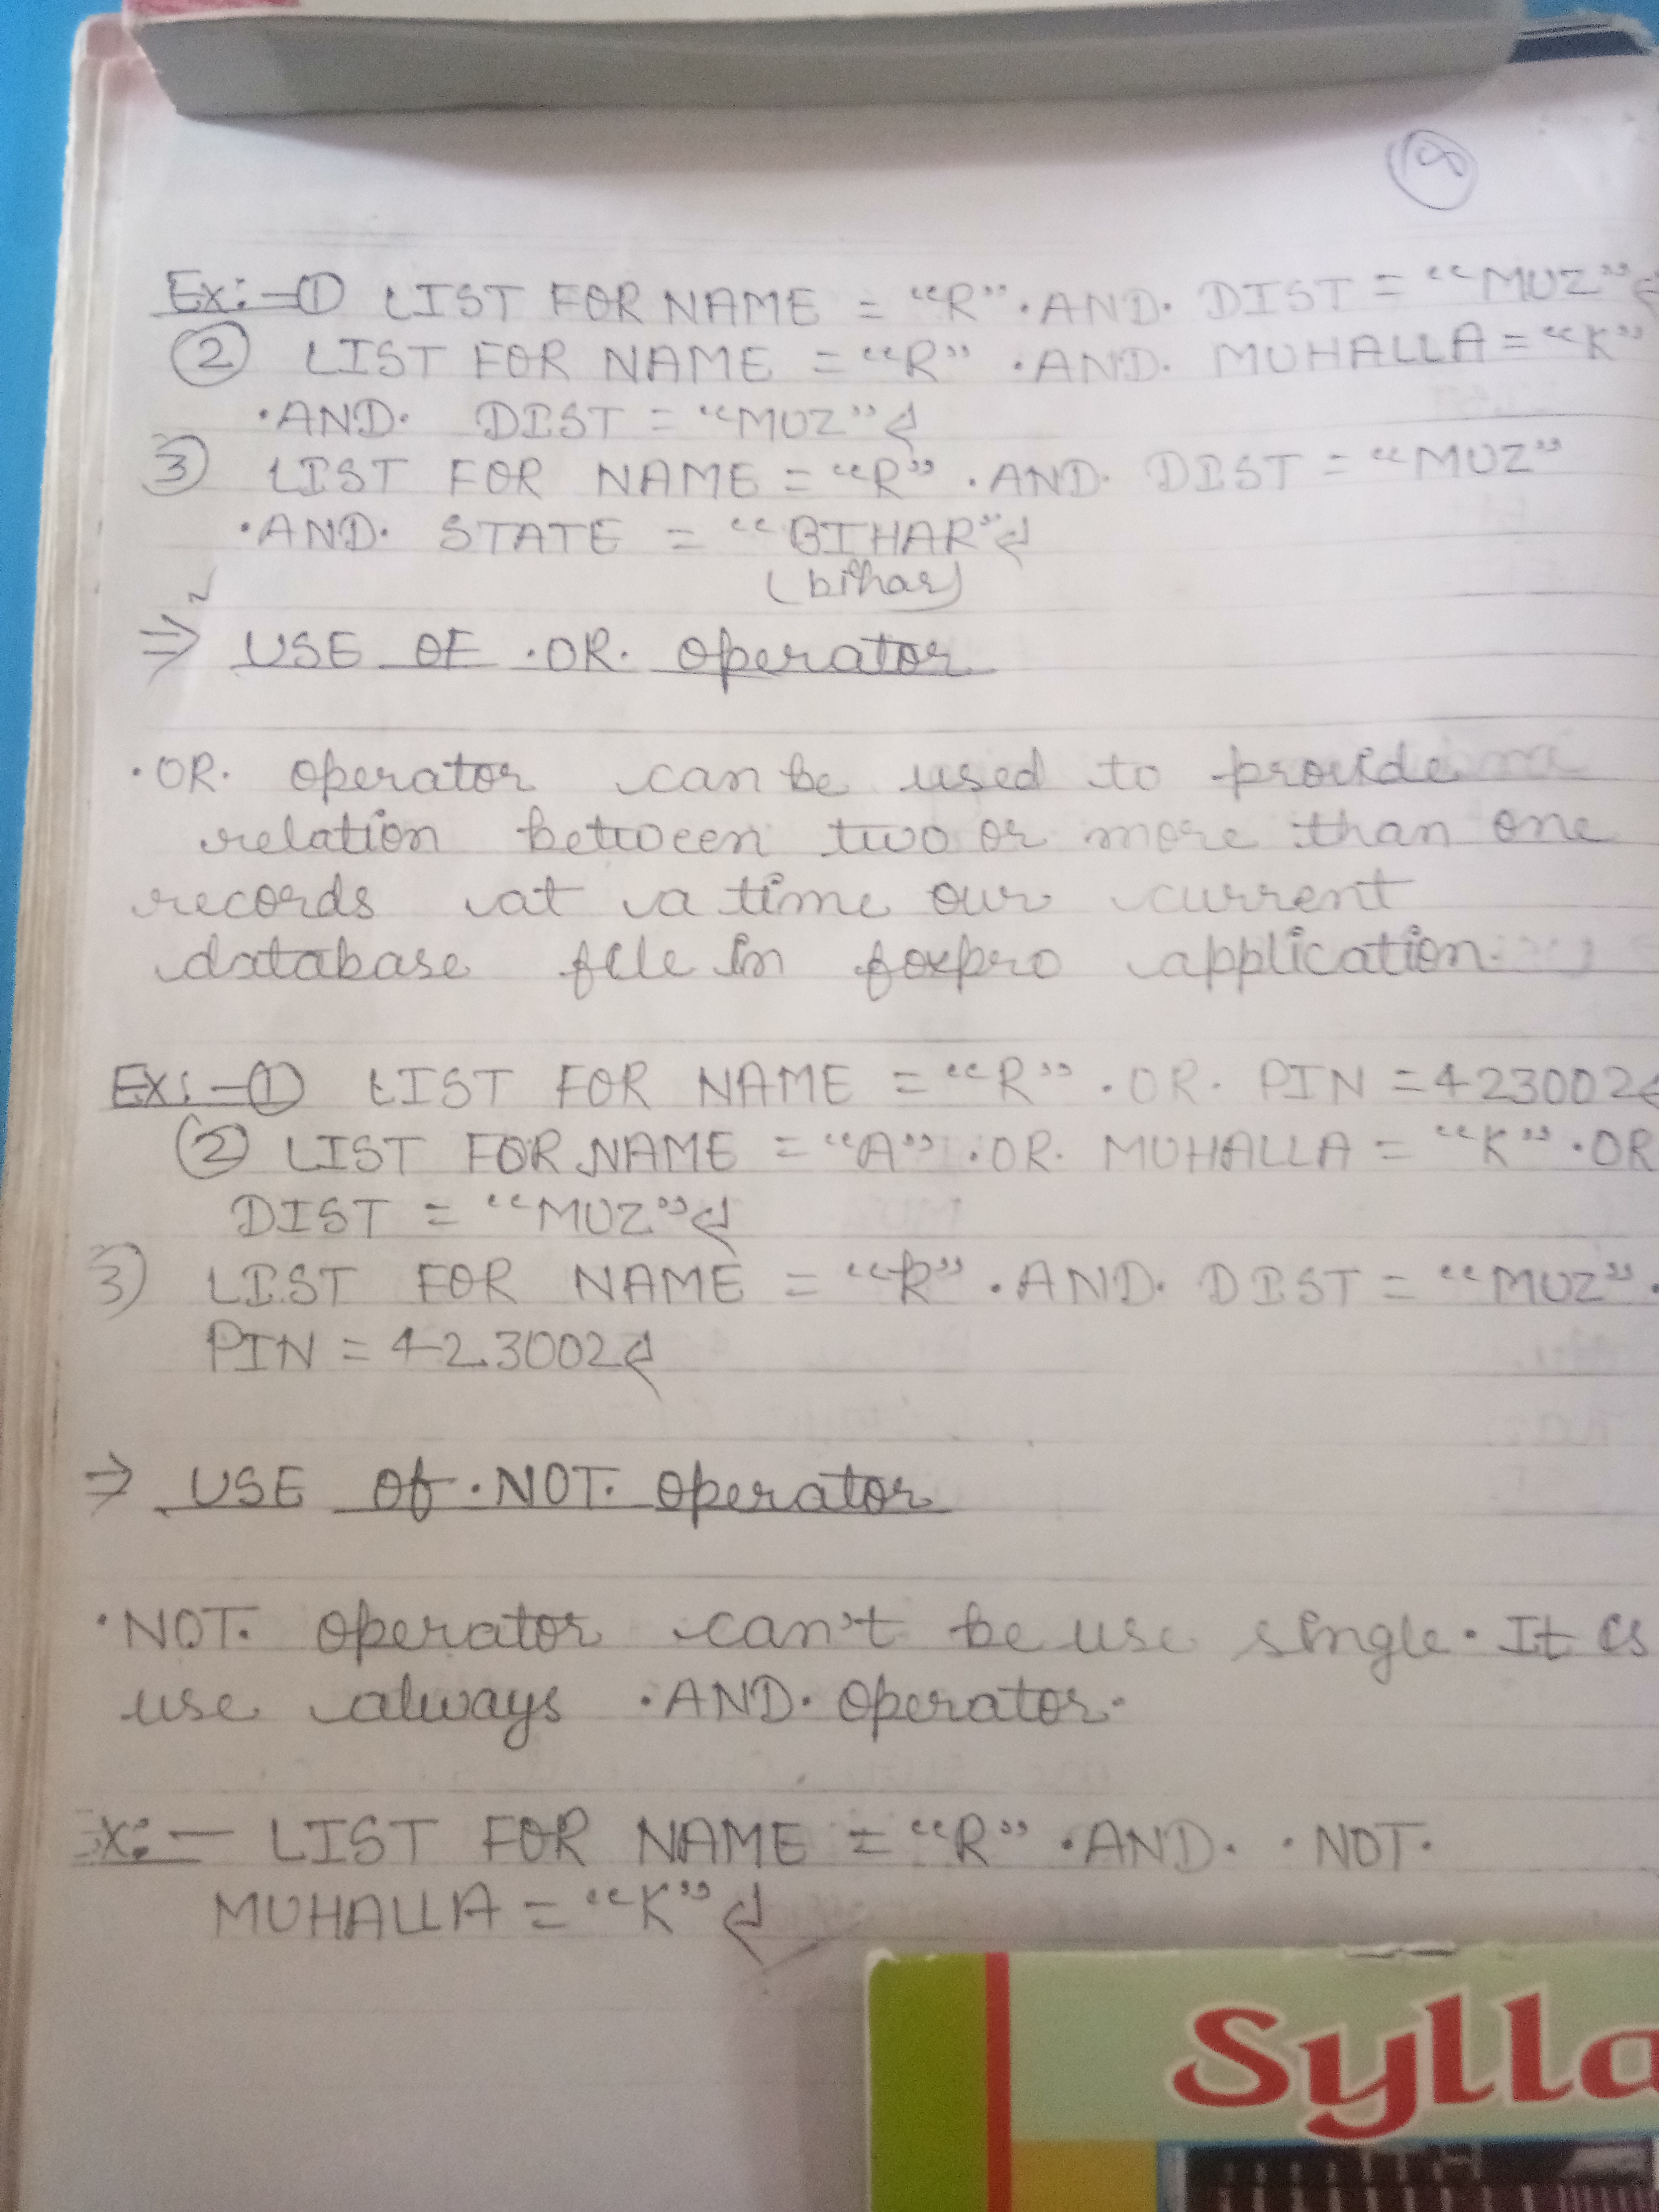 Ex:-① LIST FOR NAME = "R" .AND. DIST = "MUZ"
② LIST FOR NAME = "R" .AND. MUHALLA = "K"
.AND. DIST = "MUZ"
③ LIST FOR NAME = "R" .AND. DIST = "MUZ"
.AND. STATE = "BIHAR"
(bihar)
⇒ USE OF .OR. operator
.OR. operator can be used to provide
relation between two or more than one
records at a time our current
database file in foxpro application.
Ex:-① LIST FOR NAME = "R" .OR. PIN = 423002
② LIST FOR NAME = "A" .OR. MUHALLA = "K" .OR
DIST = "MUZ"
3) LIST FOR NAME = "R" .AND. DIST = "MUZ" .
PIN = 423002
⇒ USE of .NOT. operator
.NOT. operator can't be use single. It is
use always .AND. operator.
Ex:- LIST FOR NAME = "R" .AND. .NOT.
MUHALLA = "K"
Sylla